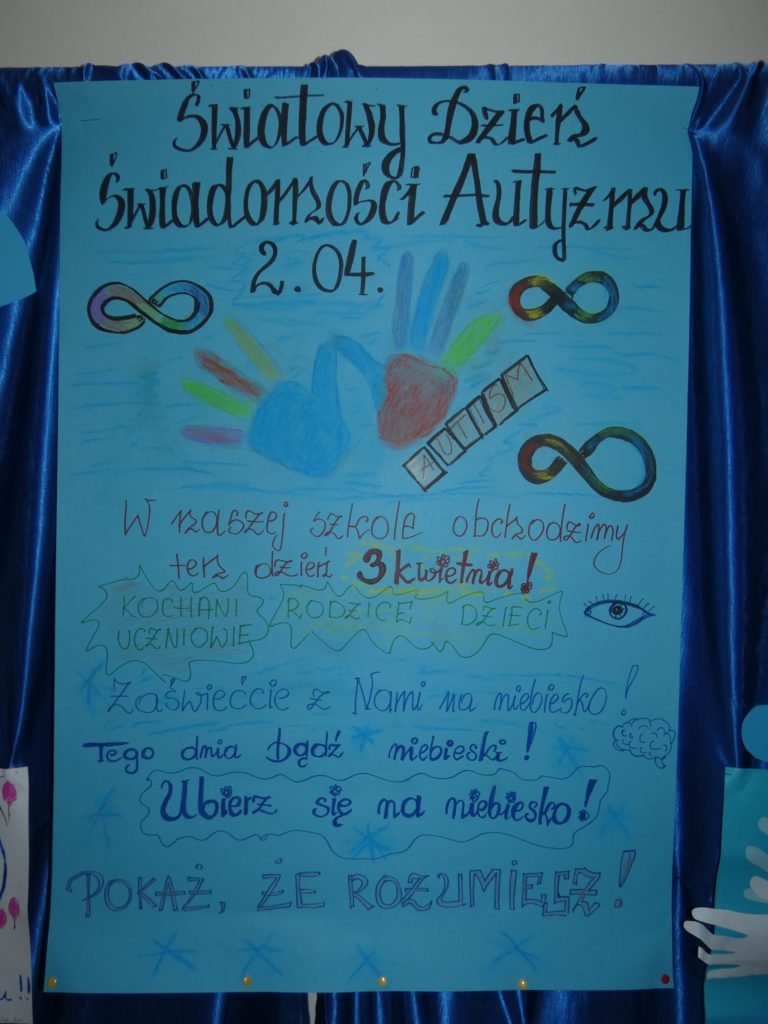 Światowy Dzień
Świadomości Autyzmu
2.04.
AUTISM
W naszej szkole obchodzimy
ten dzień 3 kwietnia!
KOCHANI RODZICE DZIECI
UCZNIOWIE
Zaświećcie z Nami na niebiesko!
Tego dnia bądź niebieski!
Ubierz się na niebiesko!
POKAŻ, ŻE ROZUMIESZ!